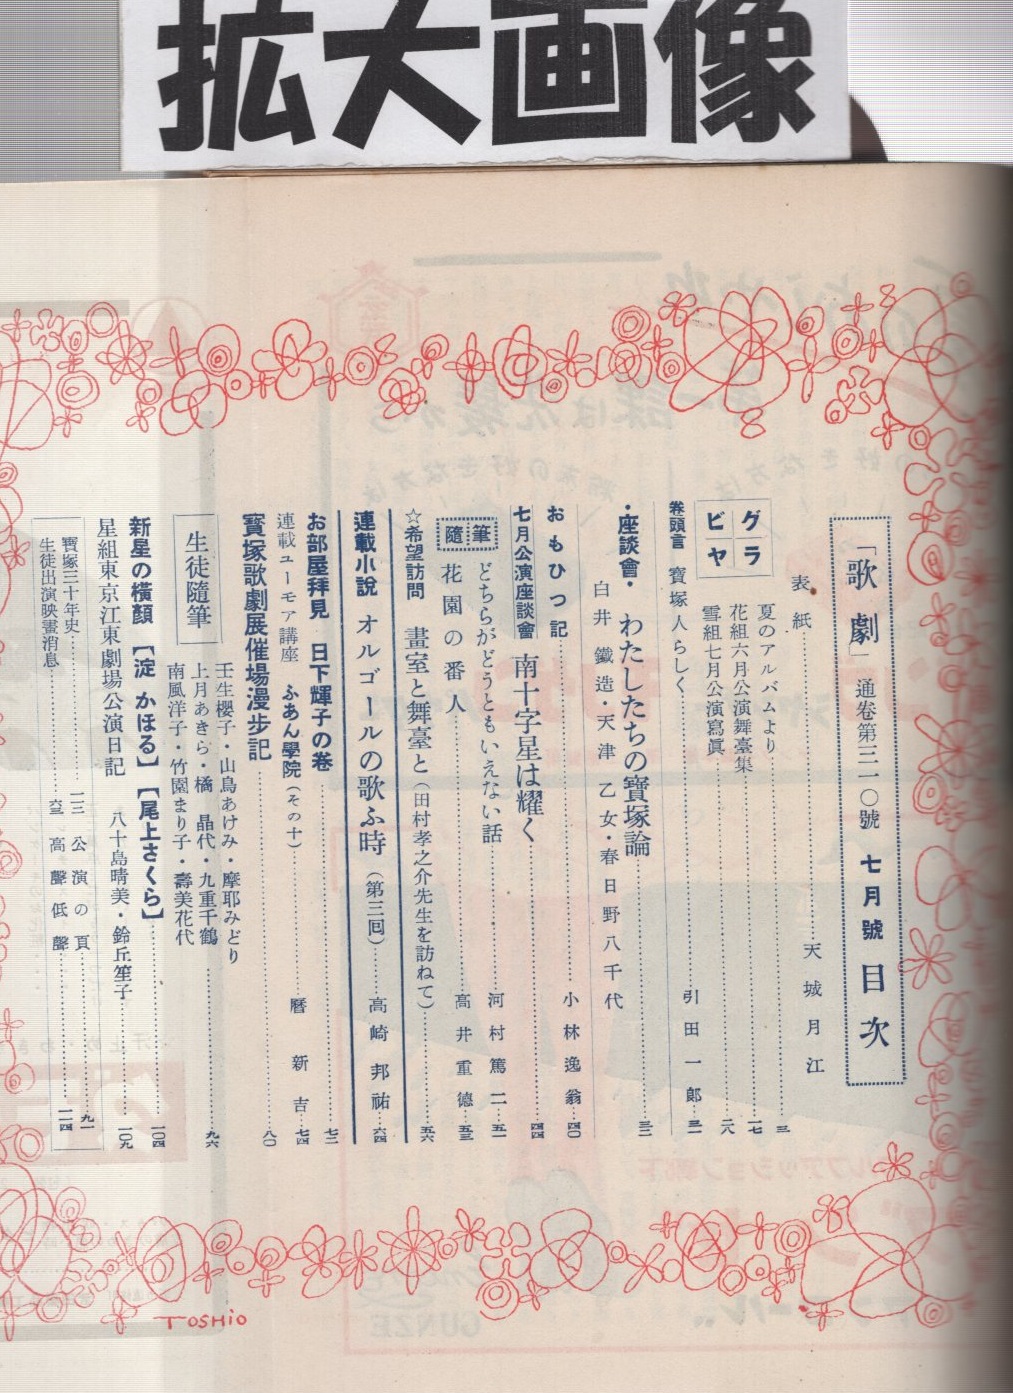 拡大画像
「歌劇」 通巻第三一〇號 七月號 目次
表紙 天城月江
グラビヤ
夏のアルバムより 三
花組六月公演舞臺集 一七
雪組七月公演寫眞 二八
卷頭言 寶塚人らしく 引田一郎 三一
・座談會・ わたしたちの寶塚論 三二
白井鐵造・天津乙女・春日野八千代
おもひつ記 小林逸翁 四〇
七月公演座談會 南十字星は耀く 四四
隨筆
どちらがどうともいえない話 河村篤二 五一
花園の番人 高井重德 五三
☆希望訪問 畫室と舞臺と(田村孝之介先生を訪ねて) 五六
連載小說 オルゴールの歌ふ時(第三囘) 高崎邦祐 六四
お部屋拜見 日下輝子の卷 七二
連載ユーモア講座 ふあん學院(その十) 暦新吉 七四
寶塚歌劇展催場漫步記 八〇
生徒隨筆
壬生櫻子・山鳥あけみ・摩耶みどり
上月あきら・橘 晶代・九重千鶴 九六
南風洋子・竹園まり子・壽美花代
新星の橫顏【淀かほる】【尾上さくら】 一〇四
星組東京江東劇場公演日記 八十島晴美・鈴丘笙子 一〇九
寶塚三十年史 一三
公演の頁 九一
生徒出演映畫消息 六三
高聲低聲 一一四
TOSHIO
GUNZE